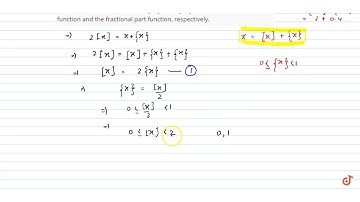 function and the fractional part function, respectively.
= 2 + 0.4
⇒) 2[x] = x + {x}
x = [x] + {x}
⇒) 2[x] = [x] + {x} + {x}
0 ≤ {x} < 1
⇒) [x] = 2{x} — ①
⇒) {x} = [x]/2
⇒) 0 ≤ [x]/2 < 1
⇒) 0 ≤ [x] < 2 0, 1